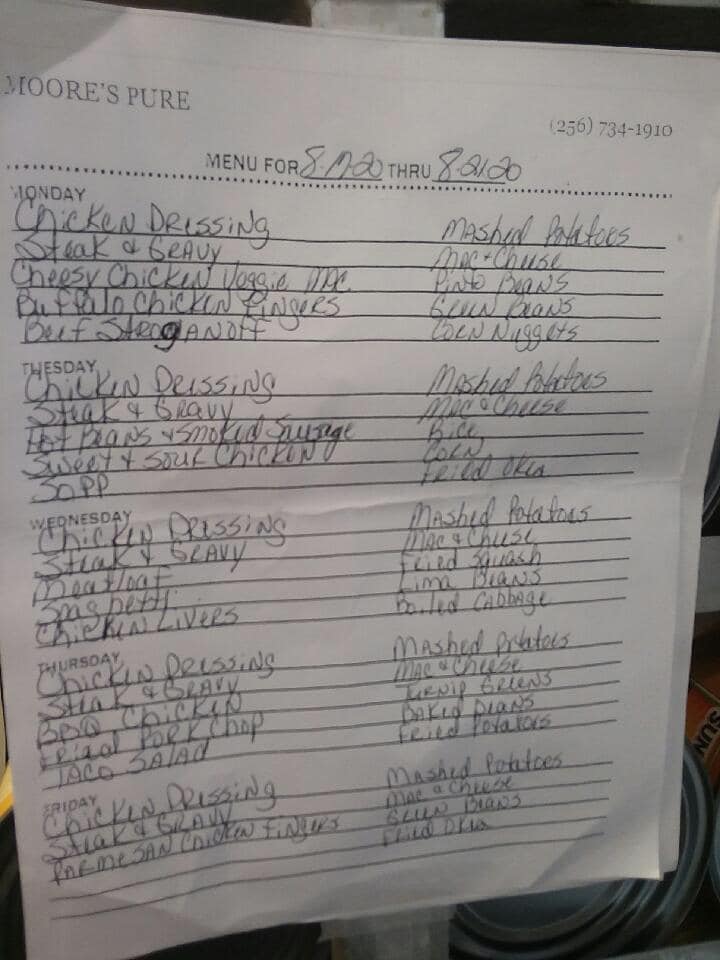 MOORE'S PURE
(256) 734-1910
MENU FOR 8-17-20 THRU 8-21-20
MONDAY
Chicken Dressing Mashed Potatoes
Steak & Gravy Mac + Cheese
Cheesy Chicken Veggie Mac Pinto Beans
Buffalo Chicken Fingers Green Beans
Beef Stroganoff Corn Nuggets
TUESDAY
Chicken Dressing Mashed Potatoes
Steak & Gravy Mac & Cheese
Beans & Smoked Sausage Rice
Sweet & Sour Chicken Corn
Fried Okra
WEDNESDAY
Chicken Dressing Mashed Potatoes
Steak & Gravy Mac & Cheese
Meatloaf Fried Squash
Spaghetti Lima Beans
Chicken Livers Boiled Cabbage
THURSDAY
Chicken Dressing Mashed Potatoes
Steak & Gravy Mac & Cheese
BBQ Chicken Turnip Greens
Fried Pork Chop Baked Beans
Taco Salad Fried Potatoes
FRIDAY
Chicken Dressing Mashed Potatoes
Steak & Gravy Mac & Cheese
Parmesan Chicken Fingers Green Beans
Fried Okra
SUN